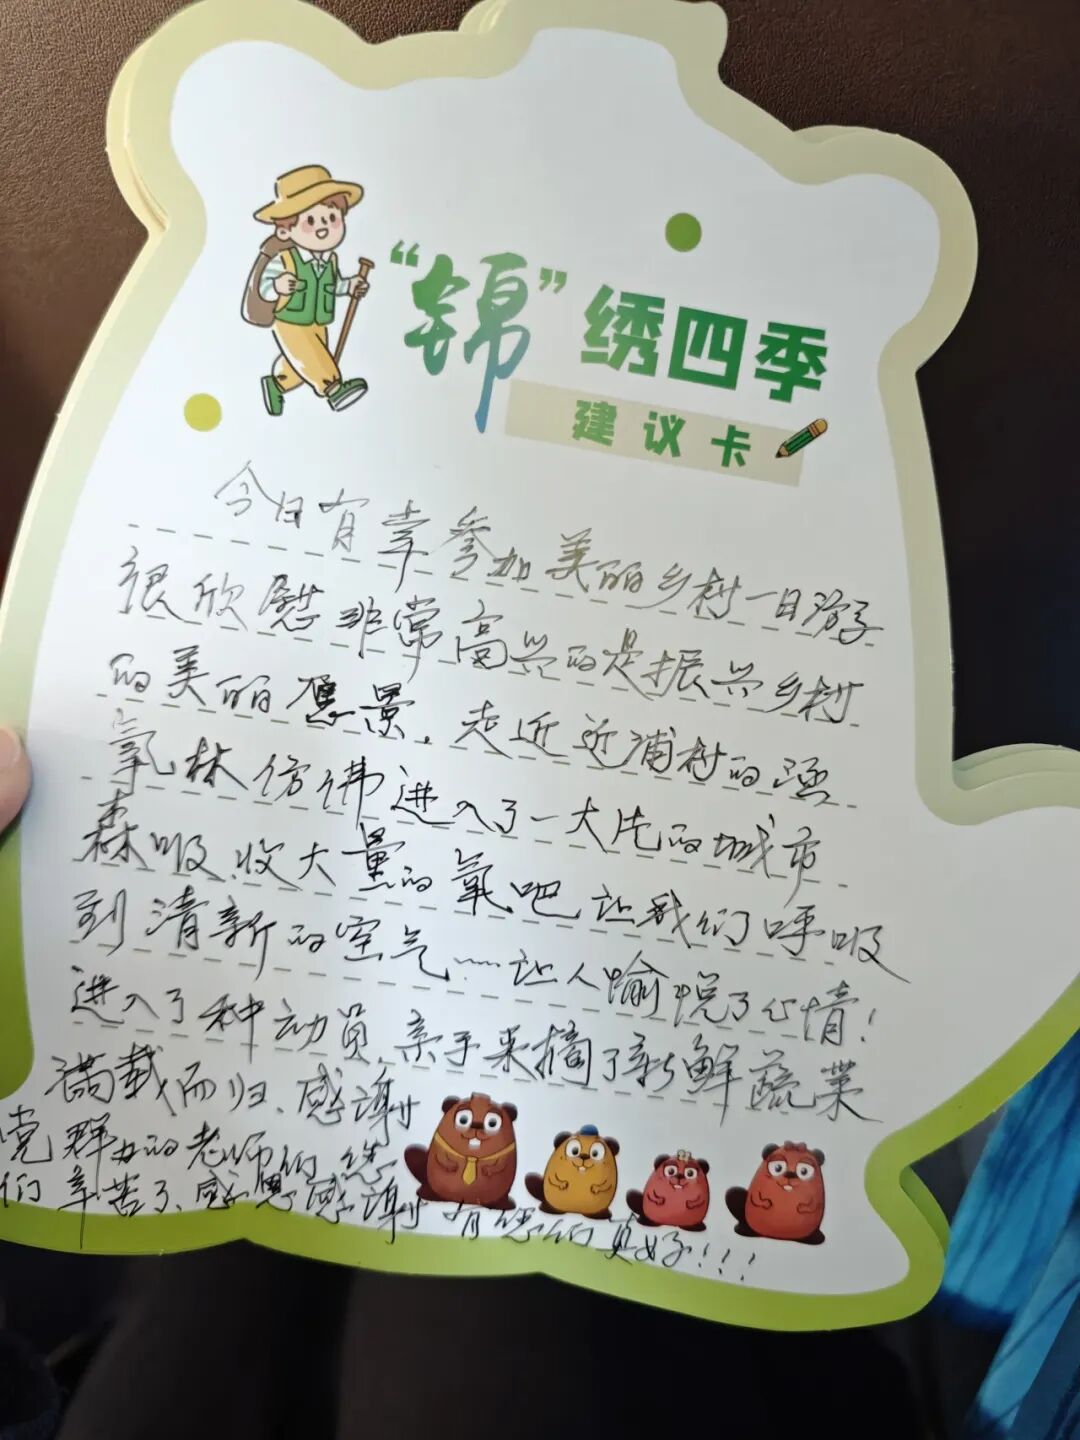 “锦”绣四季
建议卡
今日有幸参加美丽乡村一日游
很欣慰非常高兴的是振兴乡村
的美丽愿景,走近近浦村的涵
氧林仿佛进入了一大片的城市
森吸收大量的氧吧让我们呼吸
到清新的空气……让人愉悦了心情!
进入了种动员,亲手采摘了新鲜蔬菜
满载而归、感谢
党群办的老师们您
们辛苦了、感恩感谢有您们真好!!!